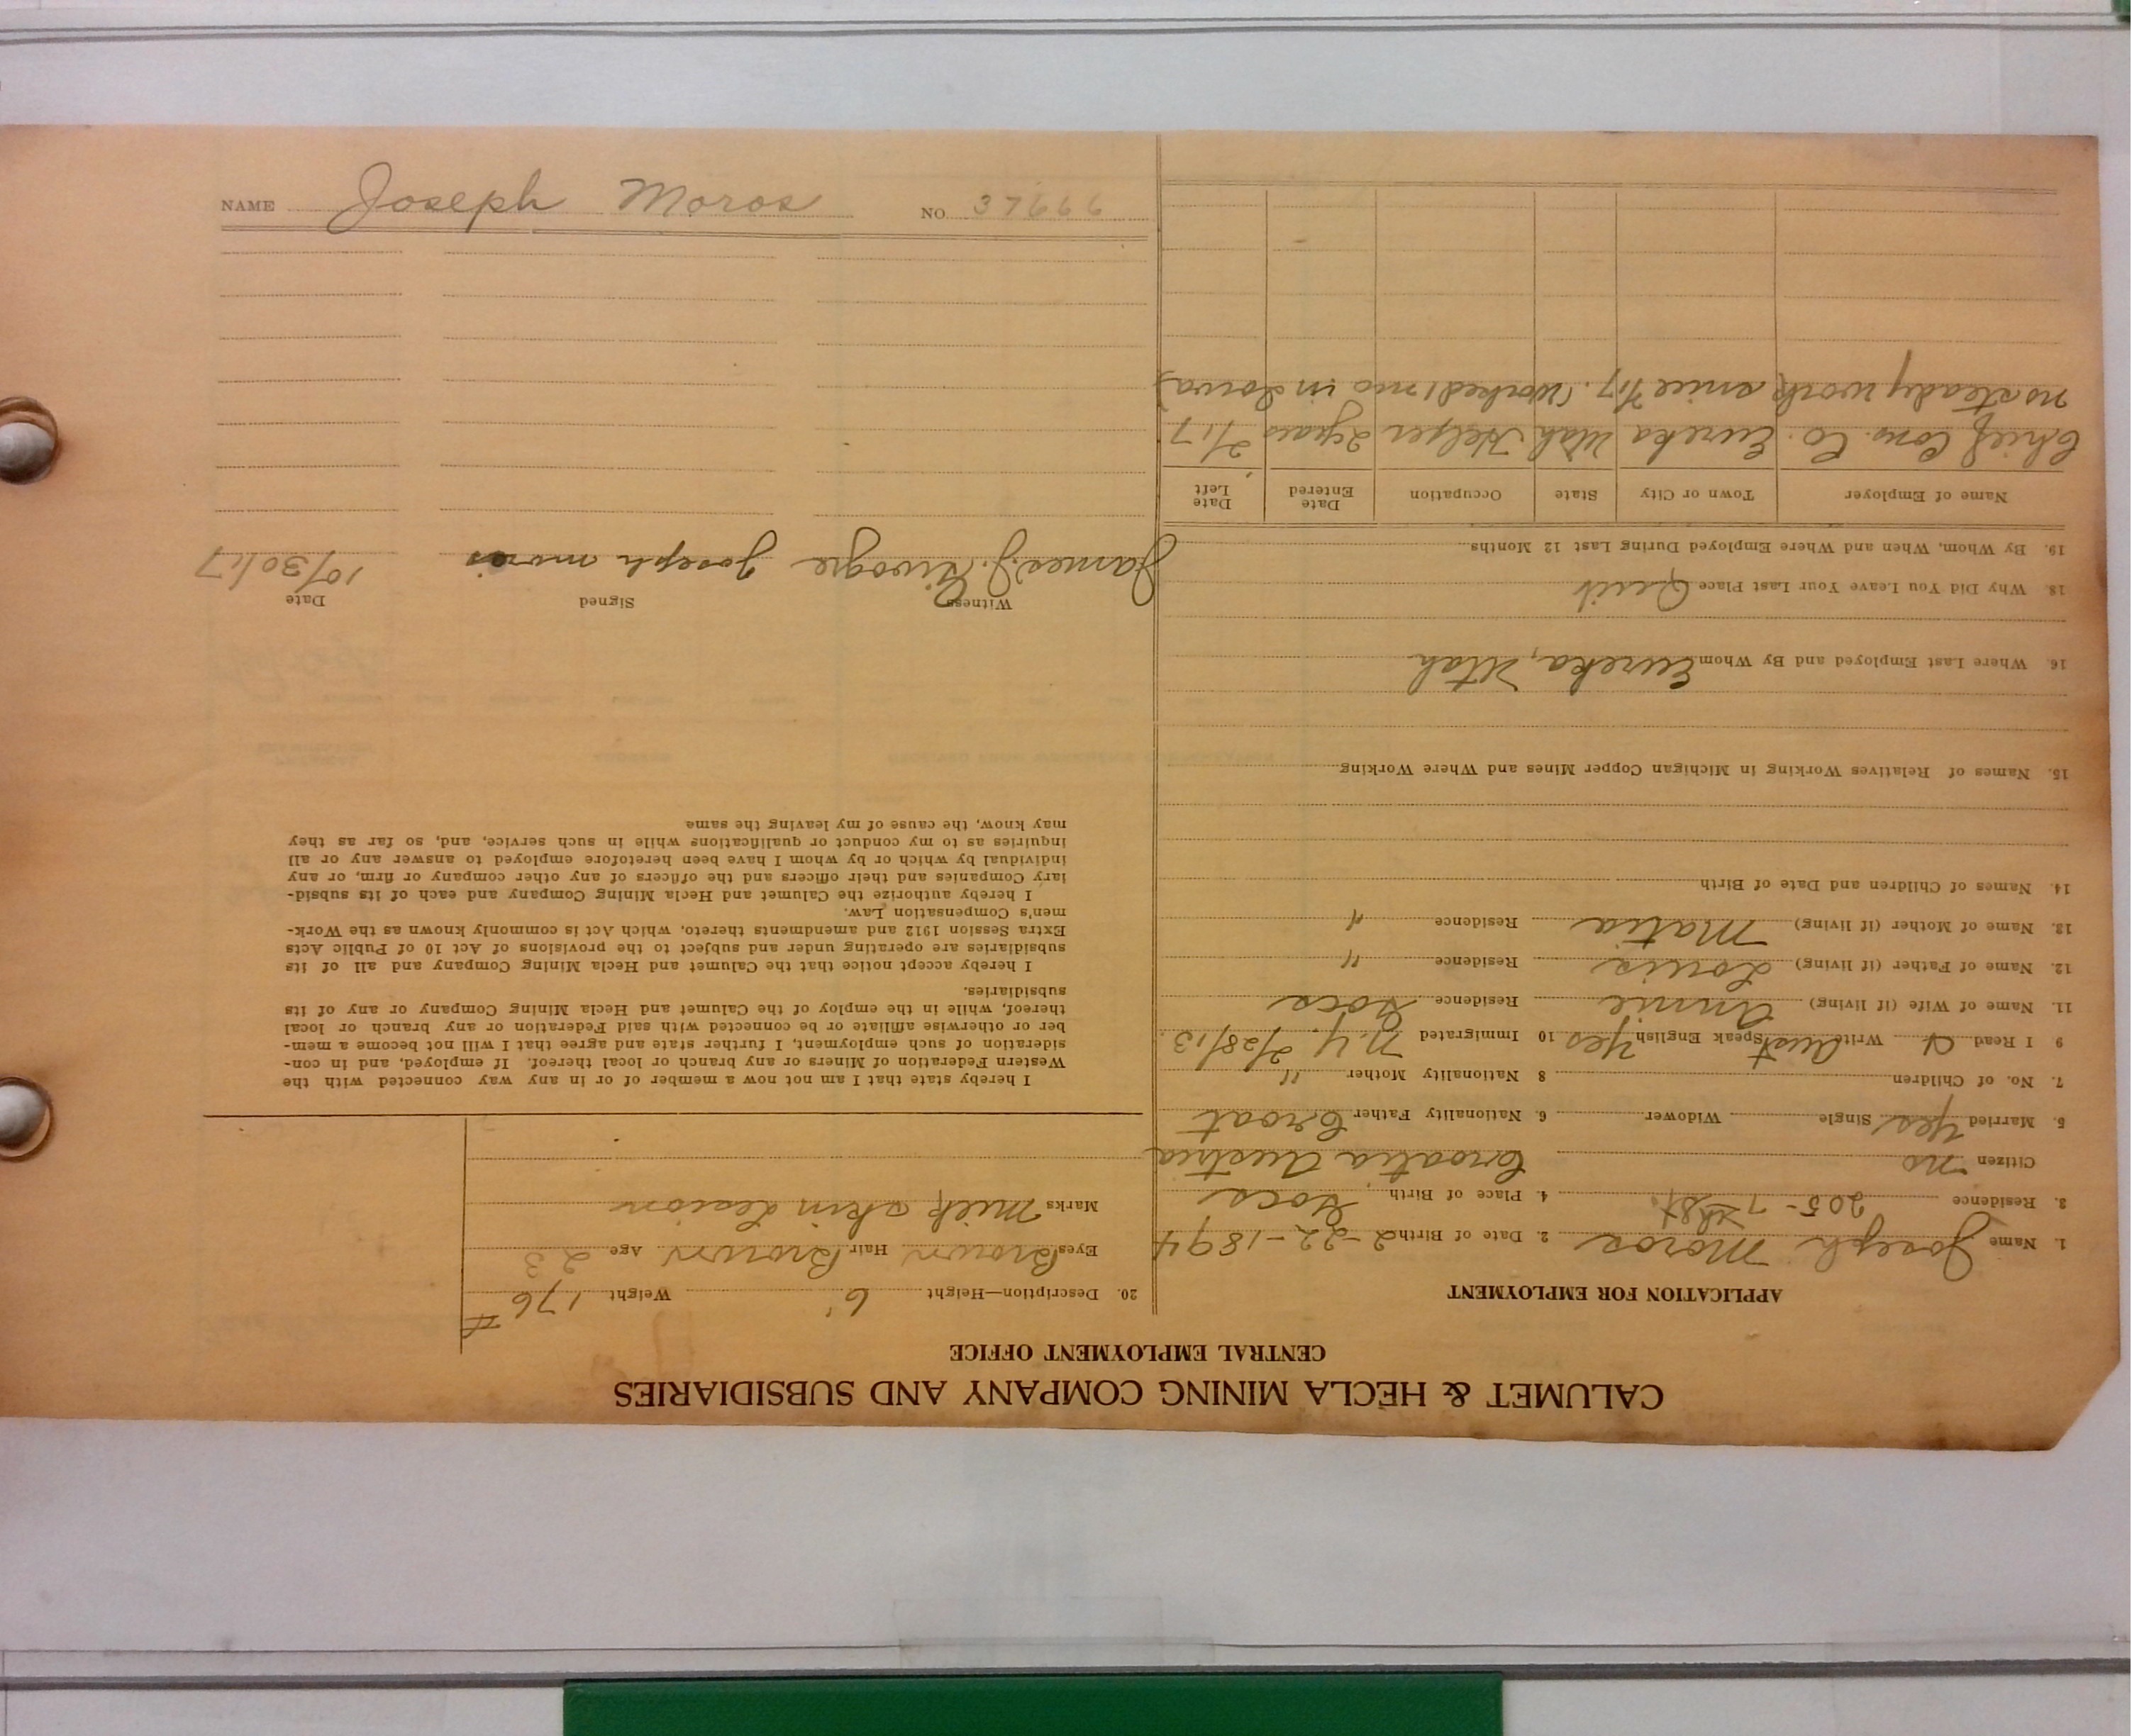 CALUMET & HECLA MINING COMPANY AND SUBSIDIARIES
CENTRAL EMPLOYMENT OFFICE
APPLICATION FOR EMPLOYMENT
1. Name Joseph Moros 2. Date of Birth 2-22-1894
3. Residence 205-7th St. 4. Place of Birth, Gocs
Citizen no Croatia Austria
5. Married Yes Single Widower 6. Nationality Father Croat
7. No. of Children 8 Nationality Mother "
9 I Read Write Aust Speak English Yes 10 Immigrated N.Y. 2/28/13
11. Name of Wife (if living) Annie Residence Gocs
12. Name of Father (if living) Louis Residence "
13. Name of Mother (if living) Matia Residence "
14. Names of Children and Date of Birth
15. Names of Relatives Working in Michigan Copper Mines and Where Working
16. Where Last Employed and By Whom Eureka, Utah
18. Why Did You Leave Your Last Place Quit
19. By Whom, When and Where Employed During Last 12 Months
Name of Employer Town or City State Occupation Date Entered Date Left
Chief Cons. Co. Eureka Utah Helper 2 years 2/17
no steady work since 7/17. (Worked 1 mo in Iowa)
20. Description—Height 6' Weight 176 #
Eyes Brown Hair Brown Age 23
Marks Milk skin lesion
I hereby state that I am not now a member of or in any way connected with the
Western Federation of Miners or any branch or local thereof. If employed, and in con-
sideration of such employment, I further state and agree that I will not become a mem-
ber or otherwise affiliate or be connected with said Federation or any branch or local
thereof, while in the employ of the Calumet and Hecla Mining Company or any of its
subsidiaries.
I hereby accept notice that the Calumet and Hecla Mining Company and all of its
subsidiaries are operating under and subject to the provisions of Act 10 of Public Acts
Extra Session 1912 and amendments thereto, which Act is commonly known as the Work-
men's Compensation Law.
I hereby authorize the Calumet and Hecla Mining Company and each of its subsid-
iary Companies and their officers and the officers of any other company or firm, or any
individual by which or by whom I have been heretofore employed to answer any or all
inquiries as to my conduct or qualifications while in such service, and, so far as they
may know, the cause of my leaving the same
Witness Signed Date
James J. Joseph moros 10/30/17
NAME Joseph Moros NO. 37666